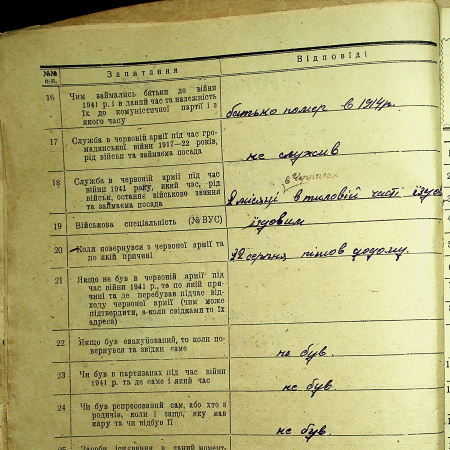 №№ п-п.
Запитання
Відповіді
16
Чим займались батьки до війни
1941 р. і в даний час та належність
їх до комуністичної партії і з
якого часу
батько помер в 1914р.
17
Служба в червоній армії під час гро-
мадянської війни 1917—22 років,
рід військ та займаєма посада
не служив
18
Служба в червоній армії під час
війни 1941 року, який час, рід
військ, останнє військове звання
та займаєма посада
2 місяці в тиловій часті
їздовим
19
Військова спеціальність (№ ВУС)
20
Коли повернувся з червоної армії та
по якій причині
22 серпня пішов додому.
21
Якщо не був в червоній армії під
час війни 1941 р., то по якій при-
чині та де перебував підчас від-
ходу червоної армії (чим може
підтвердити, а коли свідками то їх
адреса)
22
Якщо був евакуйований, то коли по-
вернувся та звідки саме
не був
23
Чи був в партизанах під час війни
1941 р. та де саме і який час
не був.
24
Чи був репресований сам, або хто з
родичів, коли і защо, яку мав
кару та чи відбув її
не був.
25
Засоби існування в даний момент